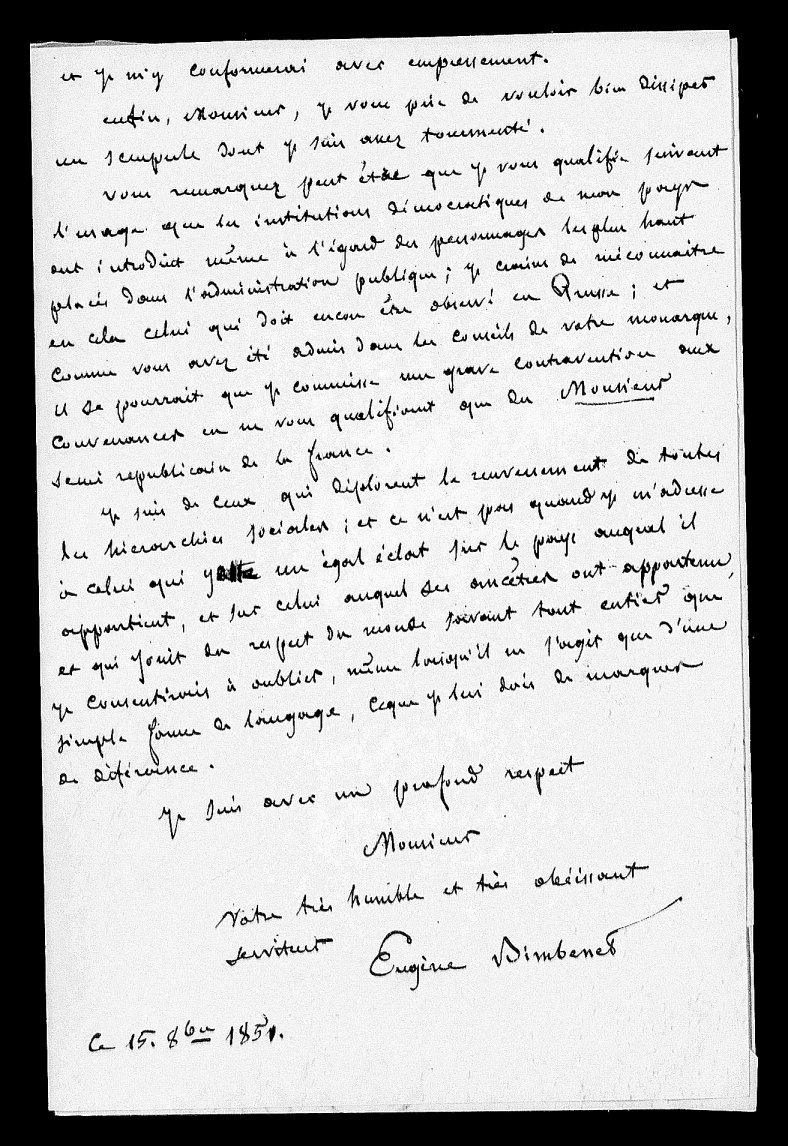 et je m'y conformerai avec empressement.
enfin, Monsieur, je vous prie de vouloir bien dissiper
un scrupule dont je suis assez tourmenté.
vous remarquez peut être que je vous qualifie suivant
l'usage que les institutions démocratiques de mon pays
ont introduit même à l'égard des personnages les plus haut
placés dans l'administration publique; je crains de méconnaitre
en cela celui qui doit encore être observé en Prusse; et
comme vous avez été admis dans les conseils de votre monarque,
il se pourrait que je commisse une grave contravention aux
convenances en ne vous qualifiant que du Monsieur
semi republicain de la france.
je suis de ceux qui déplorent le renversement de toutes
les hierarchies sociales; et ce n'est pas quand je m'adresse
à celui qui jette un égal éclat sur le pays auquel il
appartient, et sur celui auquel ses ancêtres ont appartenu,
et qui jouit du respect du monde savant tout entier que
je consentirais à oublier, même lorsqu'il ne s'agit que d'une
simple forme de langage, ce que je lui dois de marques
de déférence.
je suis avec un profond respect
Monsieur
Votre très humble et très obéissant
serviteur Eugène Bimbenet
Ce 15. 8bre 1851.